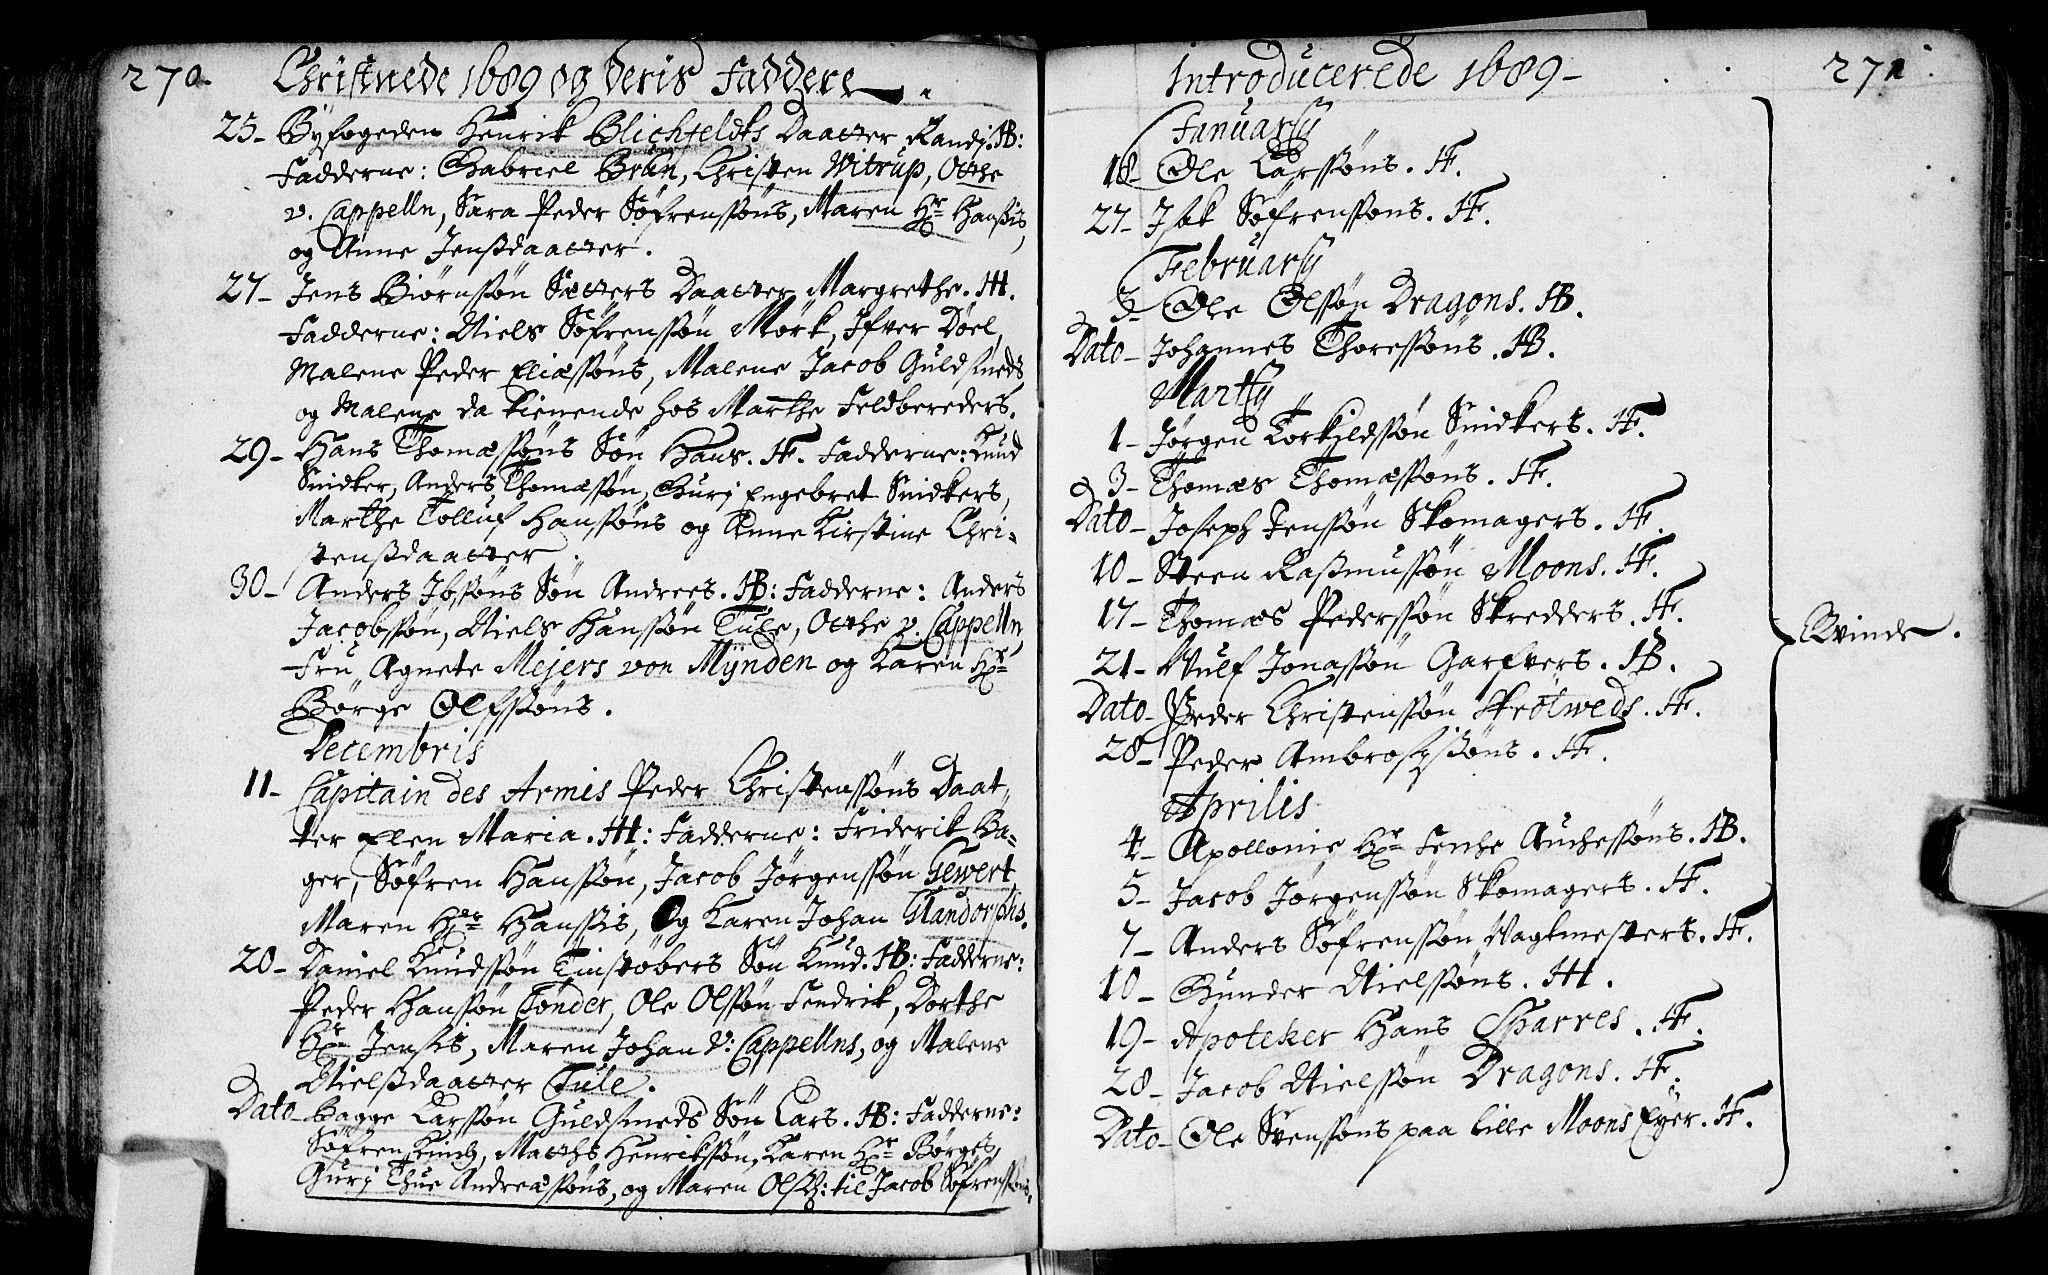 270. Christnede 1689 og deris Faddere.
25 - Byfogeden Henrik Blichfeldts Daatter Randj. HB:
Fadderne: Gabriel Brun, Christen Witrup, Otthe
v. Cappelln, Sara Peder Söfrenssöns, Maren Hr Hanssis,
og Anne Jenssdaatter.
27 - Jens Biörnssön Sætters Daatter Margrethe. HH.
Fadderne: Niels Söfrenssön Mörk, Ifver Döel,
Malene Peder Eliæssöns, Malene Jacob Guldsmeds
og Malene da tienende hos Marthe Feldbereders.
29 - Hans Thomæssöns Sön Hans. HF. Fadderne: Knud
Snidker, Anders Thomæssön, Gurj Engebret Snidkers,
Marthe Tolluf Hanssöns og Anne Kirstine Chri-
stenssdaatter.
30 - Anders Ibssöns Sön Andrees. HB: Fadderne: Anders
Jacobssön, Niels Hanssön Tule, Otthe v. Cappelln,
Fru Agnete Mejers von Mÿnden og Karen Hr
Börge Olfssöns.
Decembris
11 - Capitain des Armis Peder Christenssöns Daat-
ter Elen Maria. HH: Fadderne: Friderik Ba-
ger, Söfren Hanssön, Jacob Jörgenssön Gewert
Maren Hr Hanssis, Og Karen Johan Glandorphs.
20 - Daniel Knudssön Tinstöbers Sön Knud. HB: Fadderne:
Peder Hanssön Tönder, Ole Olssön Fendrik, Dorthe
Hr Jenssis, Maren Johan v: Cappellns, og Malene
Nielssdaatter Tule.
Dato - Bagge Larssön Guldsmeds Sön Lars. HB: Fadderne:
Söfren Kinch, Matths Henrikssön, Karen Hr Börges,
Gurj Thue Andreæssöns, og Maren Olss: til Jacob Söfrenssöns.
Introducerede 1689 - 271
Januarij
18 - Ole Larssöns. HF.
27 - Isak Söfrenssöns. HF.
Februarij
3 - Ole Olssön Dragons. HB.
Dato - Johannes Thoressöns. HB.
Martij
1 - Jörgen Torkildssön Snidkers. HF.
3 - Thomæs Thomæssöns. HF.
Dato - Joseph Jenssön Skomagers. HF.
10 - Steen Rassmussön Moons. HF.
17 - Thomæs Pederssön Skredders. HF.
21 - Wulf Jonassön Garfvers. HB.
Dato - Peder Christenssön Skrötweds. HF.
28 - Peder Ambrosijssöns. HF.
Aprilis
4 - Apollonie Hr Fenche Auchessöns. HB.
5 - Jacob Jörgenssön Skomagers. HF.
7 - Anders Söfrenssön Vagtmesters. HF.
10 - Gunder Nielssöns. HH.
19 - Apoteker Hans Sparres. HF.
28 - Jacob Nielssön Dragons. HF.
Dato - Ole Svenssöns paa lille Moons Eyer. HF.
Qvinde.